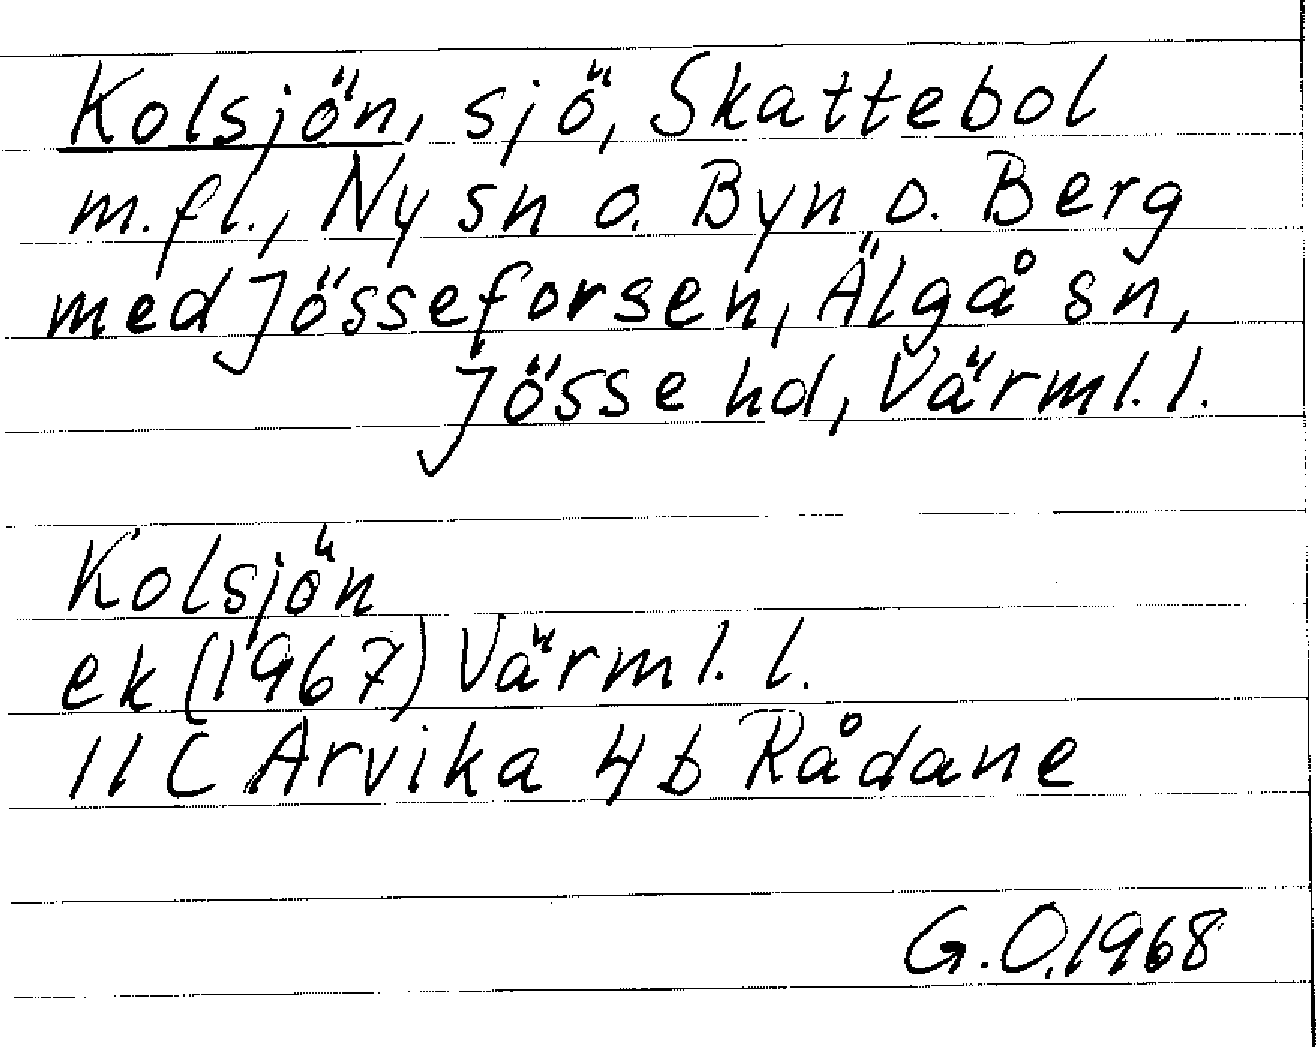 Kolsjön, sjö, Skattebol
m.fl., Ny sn o. Byn o. Berg
med Jösseforsen, Älgå sn,
Jösse hd, Värml. l.
Kolsjön
ek (1967) Värml. l.
11 C Arvika 4 b Rådane
G.O. 1968